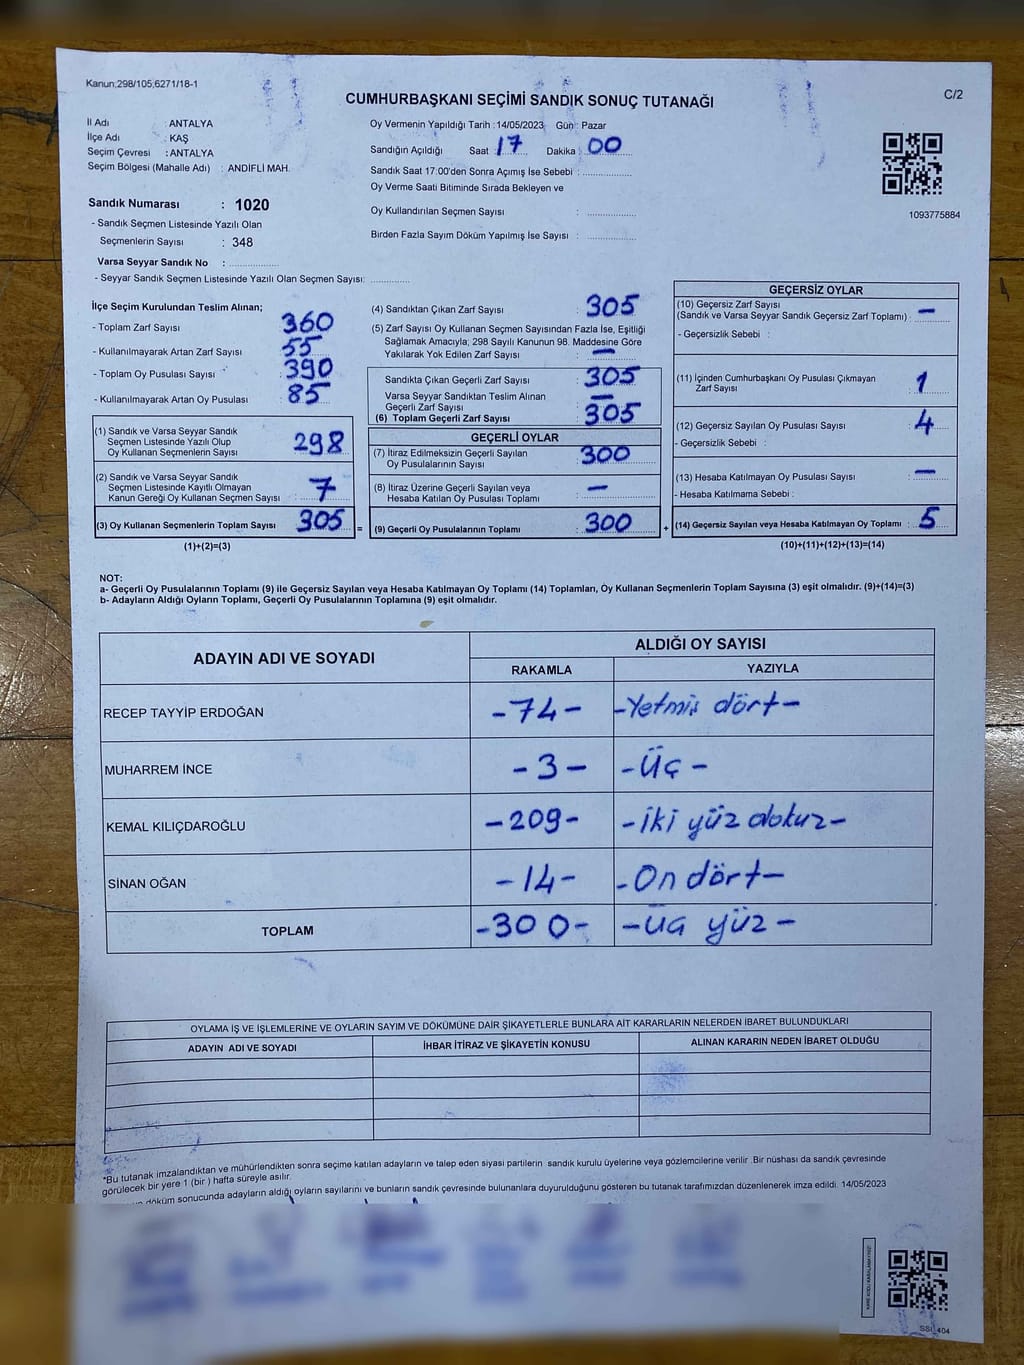 Kanun;298/105,6271/18-1
C/2
CUMHURBAŞKANI SEÇİMİ SANDIK SONUÇ TUTANAĞI
İl Adı : ANTALYA
İlçe Adı : KAŞ
Seçim Çevresi : ANTALYA
Seçim Bölgesi (Mahalle Adı) : ANDİFLİ MAH.
Oy Vermenin Yapıldığı Tarih : 14/05/2023 Gün : Pazar
Sandığın Açıldığı Saat : 17 Dakika : 00
Sandık Saat 17:00'den Sonra Açımış İse Sebebi :
Oy Verme Saati Bitiminde Sırada Bekleyen ve
Oy Kullandırılan Seçmen Sayısı :
Birden Fazla Sayım Döküm Yapılmış İse Sayısı :
1093775884
Sandık Numarası : 1020
- Sandık Seçmen Listesinde Yazılı Olan
Seçmenlerin Sayısı : 348
Varsa Seyyar Sandık No :
- Seyyar Sandık Seçmen Listesinde Yazılı Olan Seçmen Sayısı:
İlçe Seçim Kurulundan Teslim Alınan;
- Toplam Zarf Sayısı : 360
- Kullanılmayarak Artan Zarf Sayısı : 55
- Toplam Oy Pusulası Sayısı : 390
- Kullanılmayarak Artan Oy Pusulası : 85
(1) Sandık ve Varsa Seyyar Sandık
Seçmen Listesinde Yazılı Olup
Oy Kullanan Seçmenlerin Sayısı : 298
(2) Sandık ve Varsa Seyyar Sandık
Seçmen Listesinde Kayıtlı Olmayan
Kanun Gereği Oy Kullanan Seçmen Sayısı : 7
(3) Oy Kullanan Seçmenlerin Toplam Sayısı : 305 =
(1)+(2)=(3)
(4) Sandıktan Çıkan Zarf Sayısı : 305
(5) Zarf Sayısı Oy Kullanan Seçmen Sayısından Fazla İse, Eşitliği
Sağlamak Amacıyla; 298 Sayılı Kanunun 98. Maddesine Göre
Yakılarak Yok Edilen Zarf Sayısı : —
Sandıkta Çıkan Geçerli Zarf Sayısı : 305
Varsa Seyyar Sandıktan Teslim Alınan
Geçerli Zarf Sayısı : —
(6) Toplam Geçerli Zarf Sayısı : 305
GEÇERLİ OYLAR
(7) İtiraz Edilmeksizin Geçerli Sayılan
Oy Pusulalarının Sayısı : 300
(8) İtiraz Üzerine Geçerli Sayılan veya
Hesaba Katılan Oy Pusulası Toplamı : —
(9) Geçerli Oy Pusulalarının Toplamı : 300 +
GEÇERSİZ OYLAR
(10) Geçersiz Zarf Sayısı
(Sandık ve Varsa Seyyar Sandık Geçersiz Zarf Toplamı) : —
- Geçersizlik Sebebi :
(11) İçinden Cumhurbaşkanı Oy Pusulası Çıkmayan
Zarf Sayısı : 1
(12) Geçersiz Sayılan Oy Pusulası Sayısı : 4
- Geçersizlik Sebebi :
(13) Hesaba Katılmayan Oy Pusulası Sayısı : —
- Hesaba Katılmama Sebebi :
(14) Geçersiz Sayılan veya Hesaba Katılmayan Oy Toplamı : 5
(10)+(11)+(12)+(13)=(14)
NOT:
a- Geçerli Oy Pusulalarının Toplamı (9) ile Geçersiz Sayılan veya Hesaba Katılmayan Oy Toplamı (14) Toplamları, Oy Kullanan Seçmenlerin Toplam Sayısına (3) eşit olmalıdır. (9)+(14)=(3)
b- Adayların Aldığı Oyların Toplamı, Geçerli Oy Pusulalarının Toplamına (9) eşit olmalıdır.
ADAYIN ADI VE SOYADI
ALDIĞI OY SAYISI
RAKAMLA YAZIYLA
RECEP TAYYİP ERDOĞAN -74- -Yetmiş dört-
MUHARREM İNCE -3- -Üç-
KEMAL KILIÇDAROĞLU -209- -iki yüz dokuz-
SİNAN OĞAN -14- -On dört-
TOPLAM -300- -Üç yüz-
OYLAMA İŞ VE İŞLEMLERİNE VE OYLARIN SAYIM VE DÖKÜMÜNE DAİR ŞİKAYETLERLE BUNLARA AİT KARARLARIN NELERDEN İBARET BULUNDUKLARI
ADAYIN ADI VE SOYADI İHBAR İTİRAZ VE ŞİKAYETİN KONUSU ALINAN KARARIN NEDEN İBARET OLDUĞU
*Bu tutanak imzalandıktan ve mühürlendikten sonra seçime katılan adayların ve talep eden siyasi partilerin sandık kurulu üyelerine veya gözlemcilerine verilir .Bir nüshası da sandık çevresinde
görülecek bir yere 1 (bir ) hafta süreyle asılır.
döküm sonucunda adayların aldığı oyların sayılarını ve bunların sandık çevresinde bulunanlara duyurulduğunu gösteren bu tutanak tarafımızdan düzenlenerek imza edildi. 14/05/2023